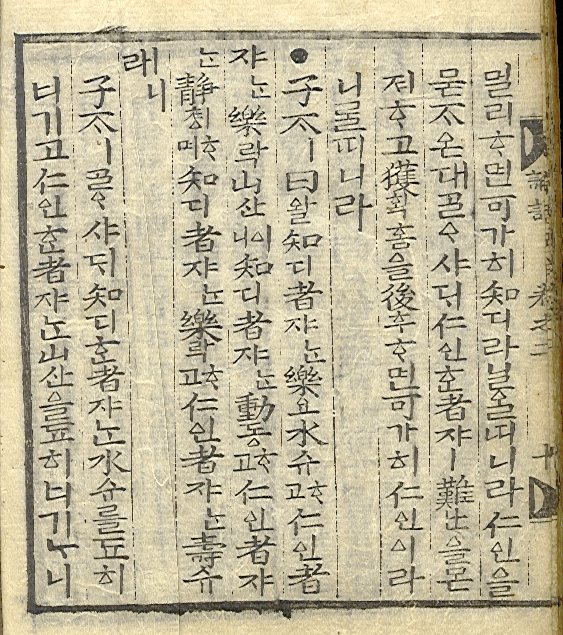 멀리ᄒᆞ면可가히知디라닐ᄋᆞᆯᄯᅵ니라仁인을
묻ᄌᆞ온대ᄀᆞᆯᄋᆞ샤ᄃᆡ仁인ᄒᆞᆫ者쟈ㅣ難난을몬
져ᄒᆞ고獲획홈을後후ᄒᆞ면可가히仁인이라
니ᄅᆞᆯᄯᅵ니라
●子ᄌᆞㅣ曰왈知디者쟈ᄂᆞᆫ樂요水슈ᄒᆞ고仁인者
쟈ᄂᆞᆫ樂락山산이니知디者쟈ᄂᆞᆫ動동ᄒᆞ고仁인者쟈
ᄂᆞᆫ靜졍ᄒᆞ며知디者쟈ᄂᆞᆫ樂락ᄒᆞ고仁인者쟈ᄂᆞᆫ壽슈
래니
子ᄌᆞㅣᄀᆞᆯᄋᆞ샤ᄃᆡ知디ᄒᆞᆫ者쟈ᄂᆞᆫ水슈를됴히
너기고仁인ᄒᆞᆫ者쟈ᄂᆞᆫ山산을됴히너기ᄂᆞ니